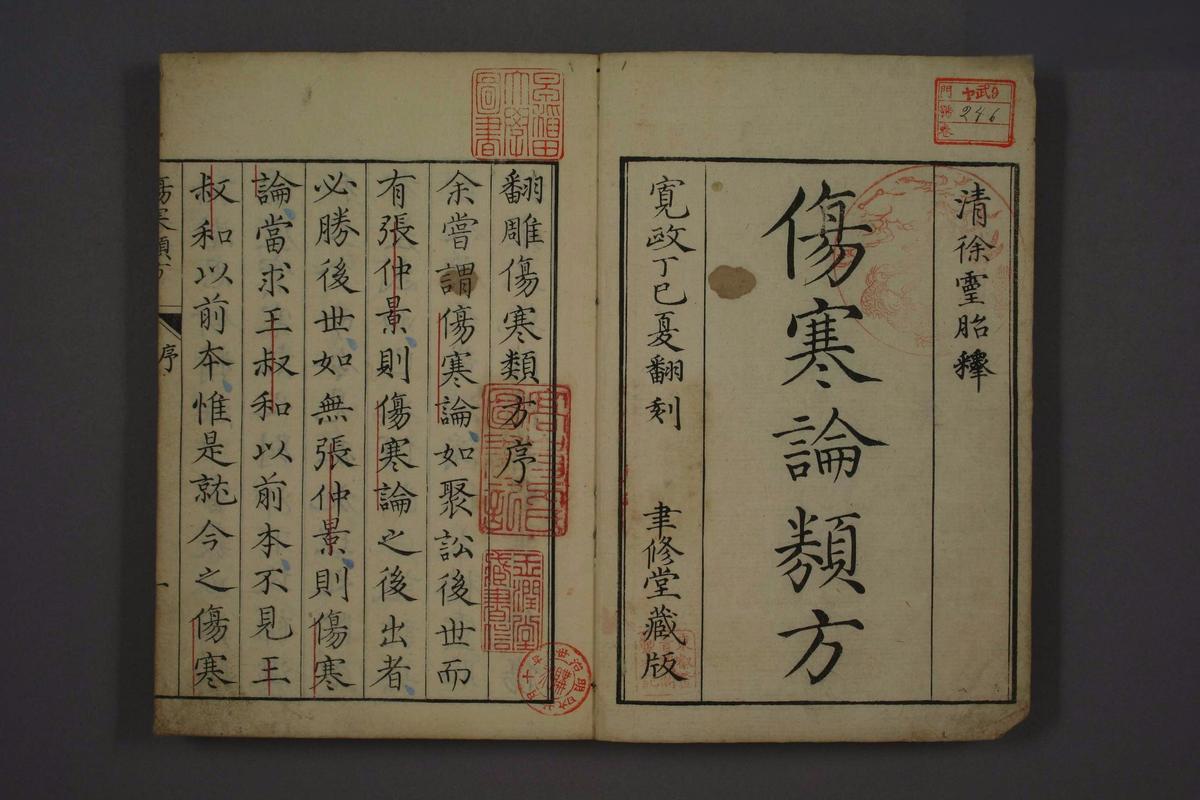 清徐靈胎釋
傷寒論類方
寛政丁巳夏翻刻 聿修堂藏版
246
翻雕傷寒類方序
余嘗謂傷寒論如聚訟後世而
有張仲景則傷寒論之後出者
必勝後世如無張仲景則傷寒
論當求王叔和以前本不見王
叔和以前本惟是就今之傷寒
傷寒類方
序
一